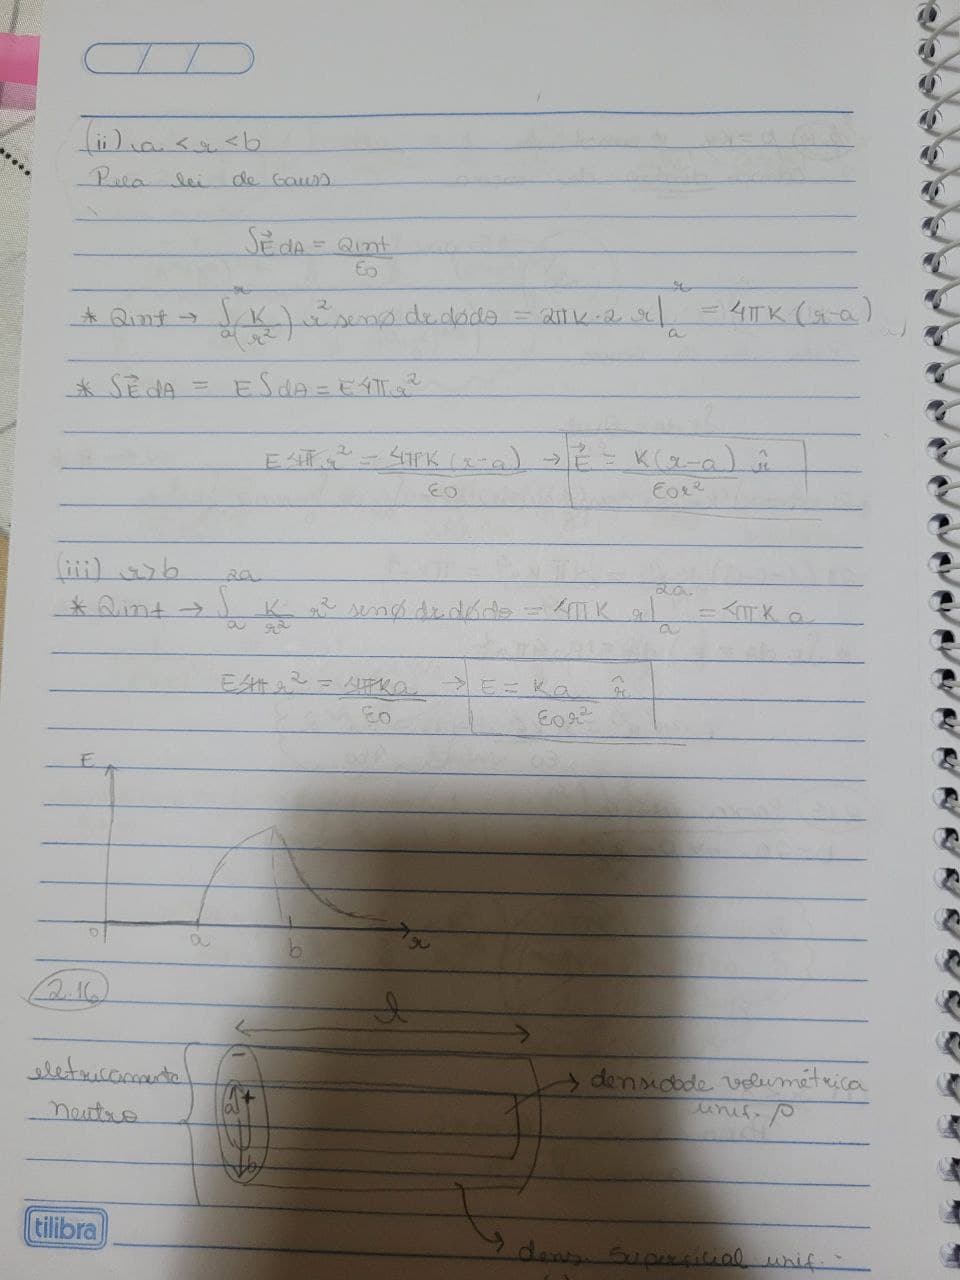 (ii) a < r < b
Pela lei de Gauss
∫E⃗ dA = Qint/ε0
* Qint → ∫ₐʳ (K/r²) r² senø dr dø dθ = 2πK·2 r|ₐʳ = 4πK (r-a)
* ∫E⃗ dA = E ∫dA = E 4πr²
E 4π r² = 4πK (r-a)/ε0 → E⃗ = K(r-a)/ε0r² r̂
(iii) r>b
* Qint → ∫ₐ²ᵃ K/r² r² senø dr dø dθ = 4πK r|ₐ²ᵃ = 4πK a
E 4π r² = 4πKa/ε0 → E = Ka/ε0r² r̂
E
0 a b r
2.16
l
eletricamente
neutro
-
a +
b
densidade volumétrica
unif. ρ
dens superficial unif.
tilibra